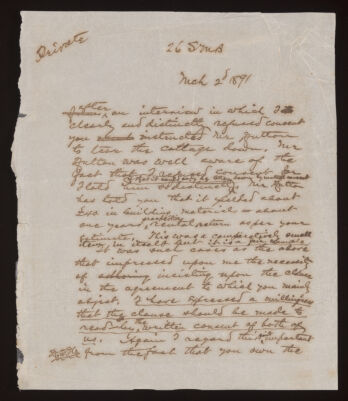 Private
26 SMB
Mch 2d 1891
After an interview in which I
clearly and distinctly refused consent
you instructed Mr Dutton
to tear the cottage down. Mr
Dutton was well aware of the
fact that I refused consent for
I told him so distinctly. Mr Dutton
has told you that it yielded about
in building material or about
one years prospective rental return as per your
estimates. This was a comparatively small
thing in itself but it is a
It was such cases as the above
that impressed upon me the necessity
of insisting upon the clause
in the agreement to which you mainly
object. I have expressed a willingness
that the clause should be made to
read "by the written consent of both of
us." Again I regard this as important
from the fact that you own the